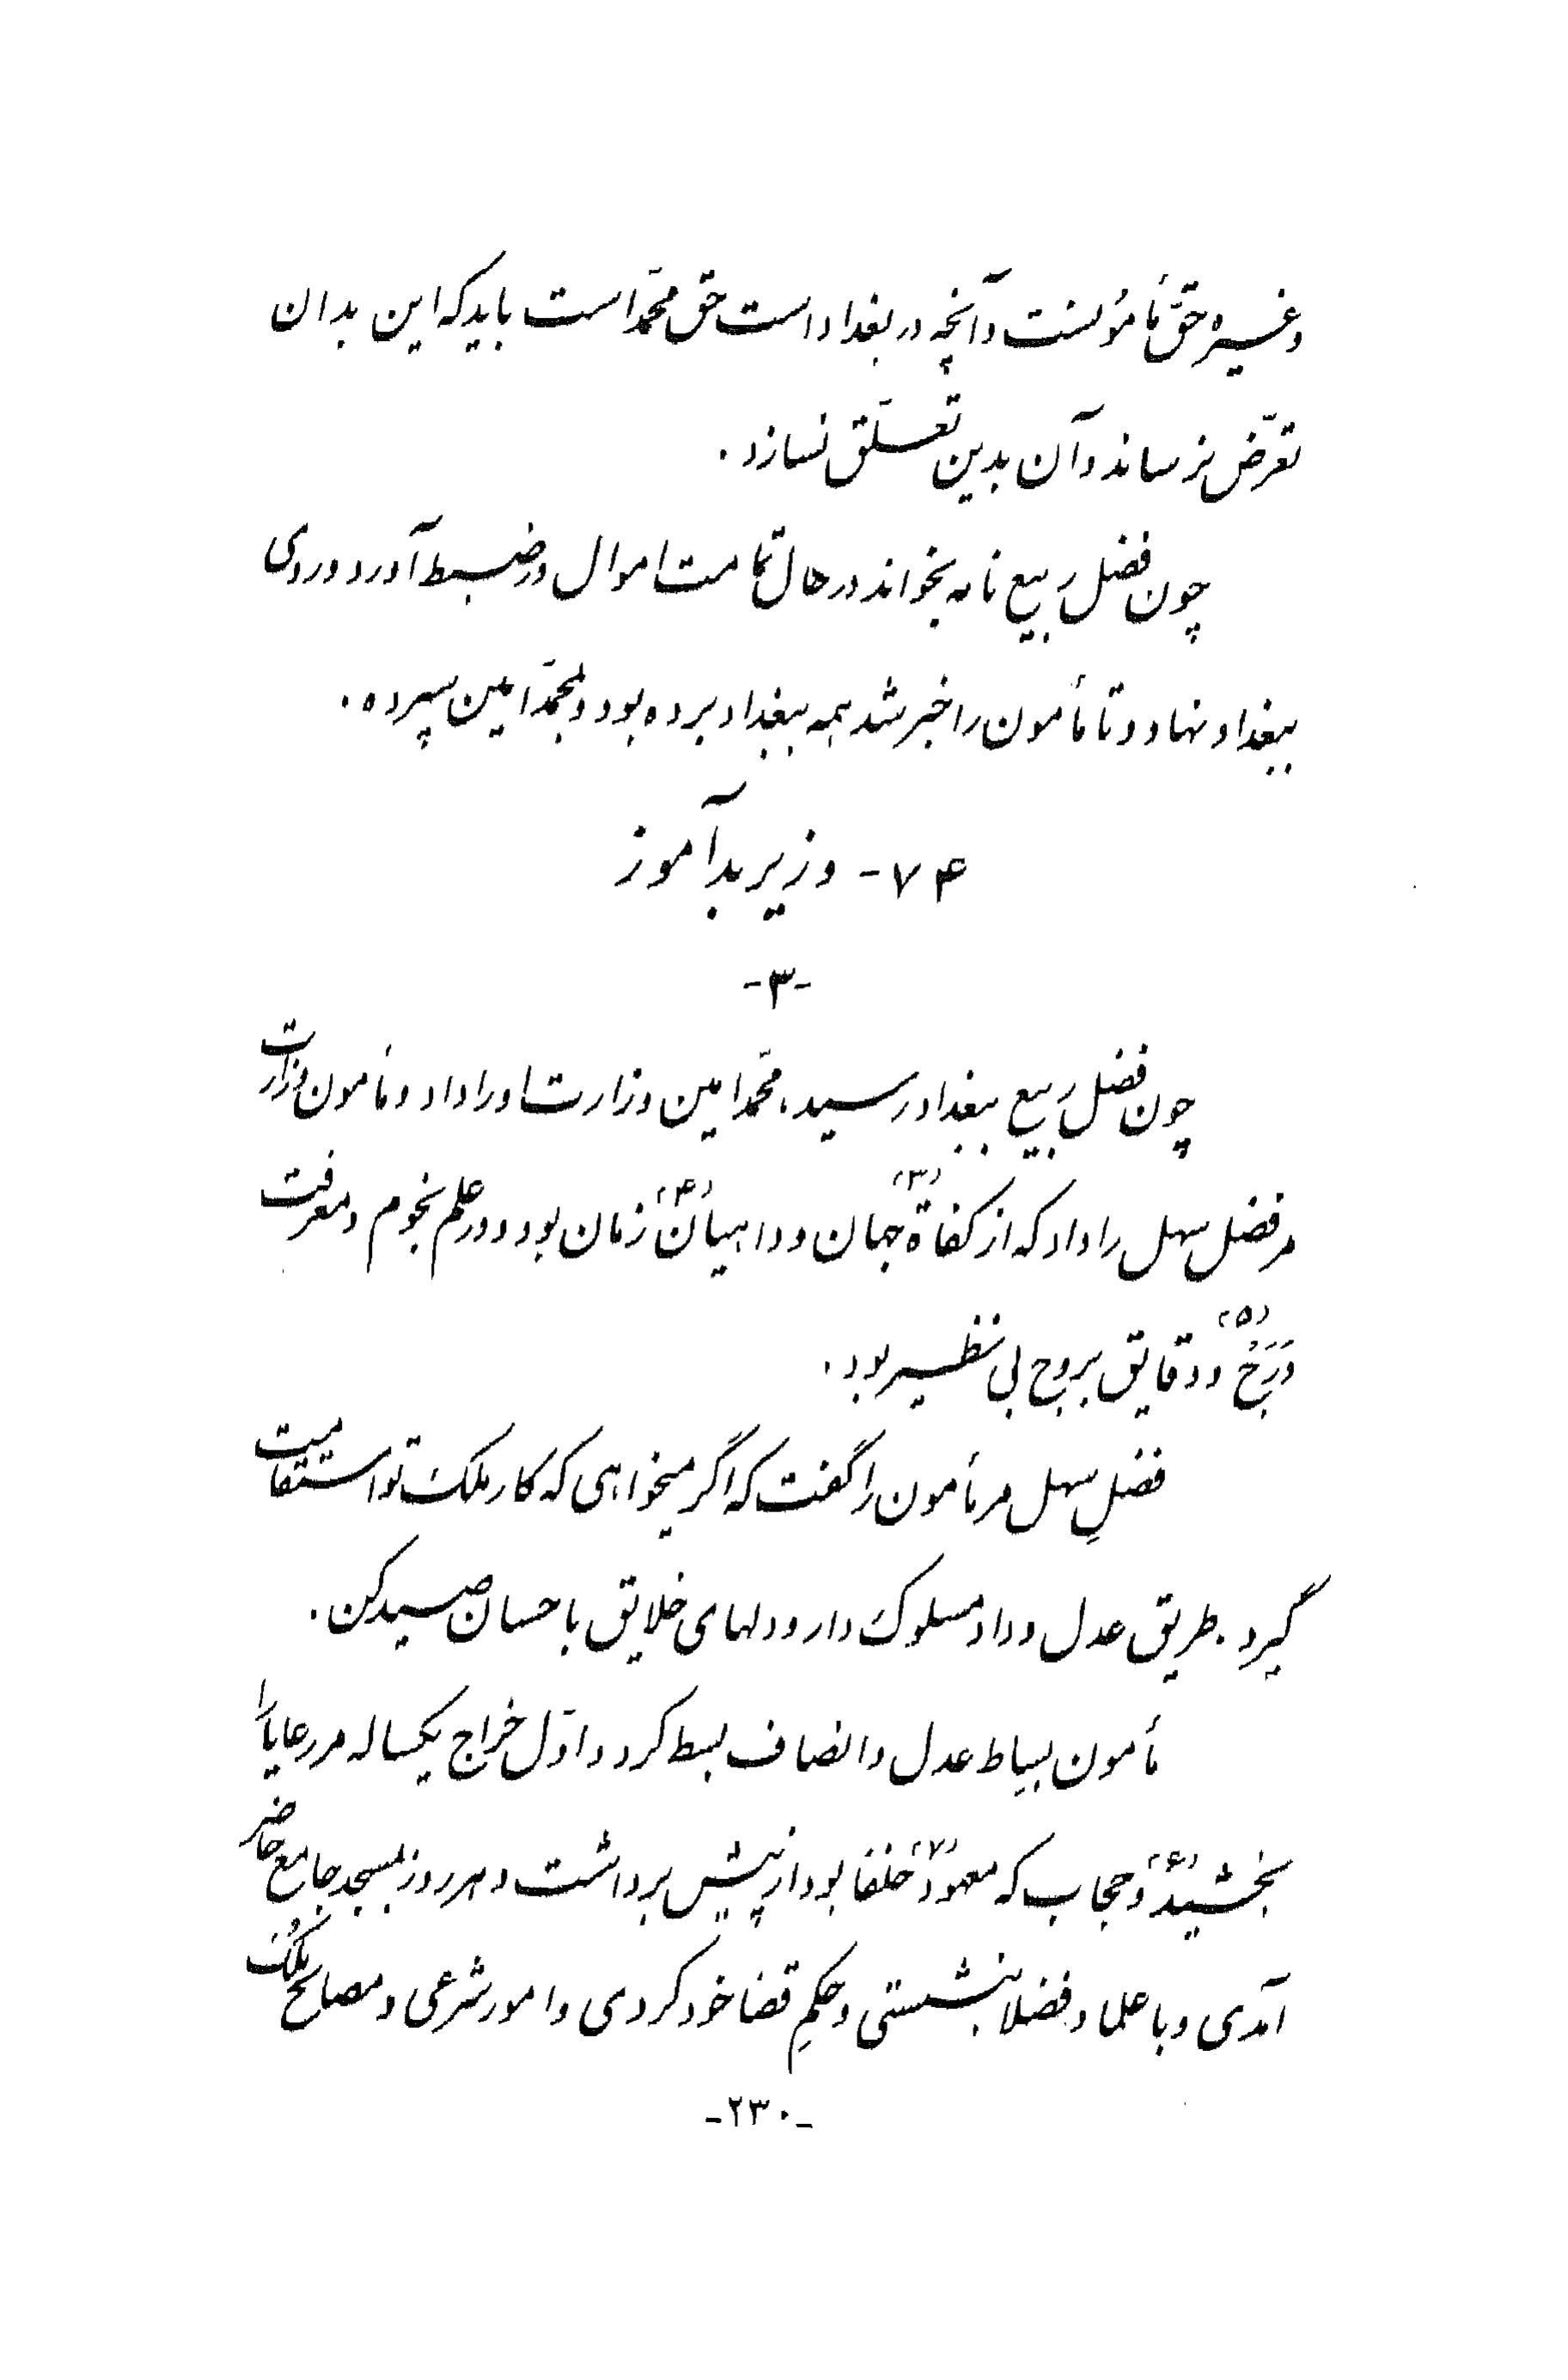 و غیره حقّ مأمونست و آنچه در بغداد است حق محمّد است باید که این بدان
تعرّض نرساند و آن بدین تعلّق نسازد.
چون فضل ربیع نامه بخواند در حال تمامت اموال در ضبط آورد و روی
ببغداد نهاد و تا مأمون را خبر شد همه ببغداد برده بود و بمحمّد امین سپرده.
۷۴- وزیر بدآموز
-۳-
چون فضل ربیع ببغداد رسید، محمّد امین وزارت او را داد و مأمون وزارت
مر فضل سهل را داد که از کفاة (۳) جهان و داهیان (۴) زمان بود و در علم نجوم و معرفت
دَرَج (۵) و دقایق بروج بی نظیر بود.
فضلِ سهل مر مأمون را گفت که اگر میخواهی که کار ملک تو استقامت
گیرد. طریق عدل و داد مسلوک دار و دلهای خلایق باحسان صید کن.
مأمون بساط عدل و انصاف بسط کرد و اوّل خراج یکساله مر رعایا را
بخشید (۶) و حجاب که معهود (۷) خلفا بود از پیش برداشت و هر روز بمسجد جامع حاضر
آمدی و با علما و فضلا بنشستی و حکمِ قضا خود کردی و امور شرعی و مصالح مُلک
-۲۳۰-